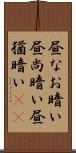 昼なお暗い
昼尚暗い昼
猶暗い((